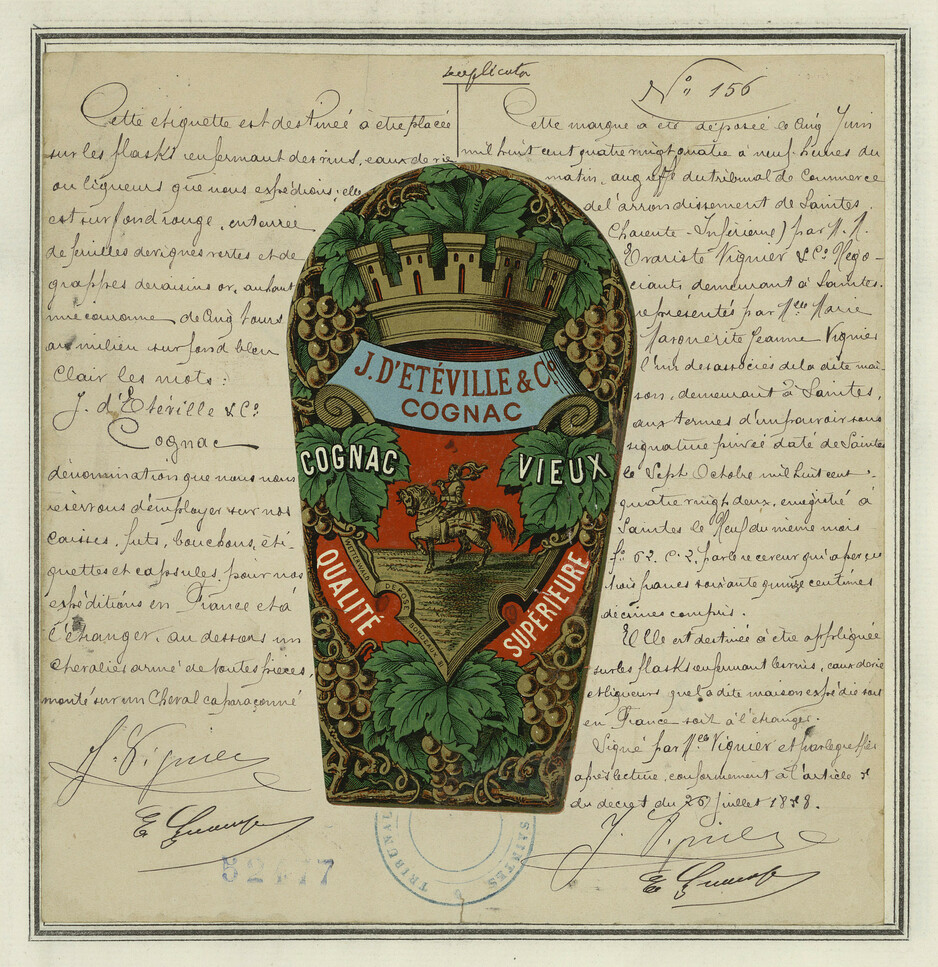 Duplicata
Cette etiquette est destineé à etre placée
sur les flasks renfermant des vins, eaux de vie
ou liqueurs que nous expédions; elle
est sur fond rouge, entourée
de feuilles de vignes vertes et de
grappes de raisins or, au haut
une couronne de Cinq tours
au milieu sur fond bleu
clair les mots:
J. d'Etéville & Co
Cognac
dénomination que nous nous
réservons d'employer sur nos
caisses, futs, bouchons, éti-
quettes et capsules pour nos
expéditions en France et à
l'étranger. au dessous un
Chevalier armé de toutes pièces,
monté sur un Cheval caparaçonné
J. Vignier
52477
J. D'ETÉVILLE & Co
COGNAC
COGNAC VIEUX
QUALITÉ SUPÉRIEURE
No 156
Cette marque a été déposée le Cinq Juin
mil huit cent quatre vingt quatre à neuf heures du
matin, au greffe du tribunal de Commerce
de l'arrondissement de Saintes
Charente-Inférieure) par M. M.
Evariste Vignier & Co Négo-
ciants demeurant à Saintes.
représentés par Melle Marie
Marguerite Jeanne Vignier
l'un des associés de la dite mai-
son, demeurant à Saintes,
aux termes d'un pouvoir sous
signature privée daté de Saintes
le Sept Octobre mil huit cent
quatre vingt deux, enregistré à
Saintes le Neuf du meme mois
fo 62. c. 2. par le receveur qui a perçu
trois francs soixante quinze centimes
décimes compris.
Elle est destinée à etre appliquée
sur les flasks renfermant les vins, eaux de vie
et liqueurs que la dite maison expédie soit
en France soit à l'étranger.
Signé par Melle Vignier et par le greffier
après lecture, conformement à l'article 5
du decret du 26 Juillet 1858.
J. Vignier
TRIBUNAL SAINTES